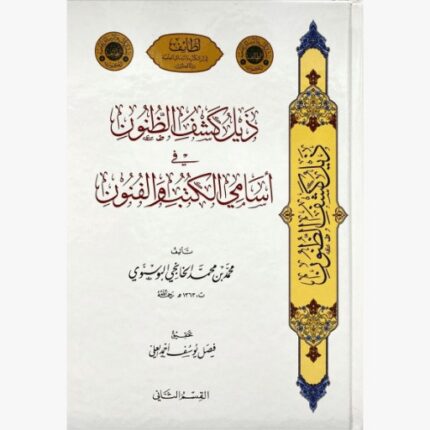 لطائف
ذيل كشف الظنون
في
أسامي الكتب والفنون
تأليف
محمد بن محمد الخانجي البوسنوي
ت ١٣٦٣ هـ رحمه الله
تحقيق
فيصل يوسف أحمد العلي
القسم الثاني
ذيل كشف الظنون